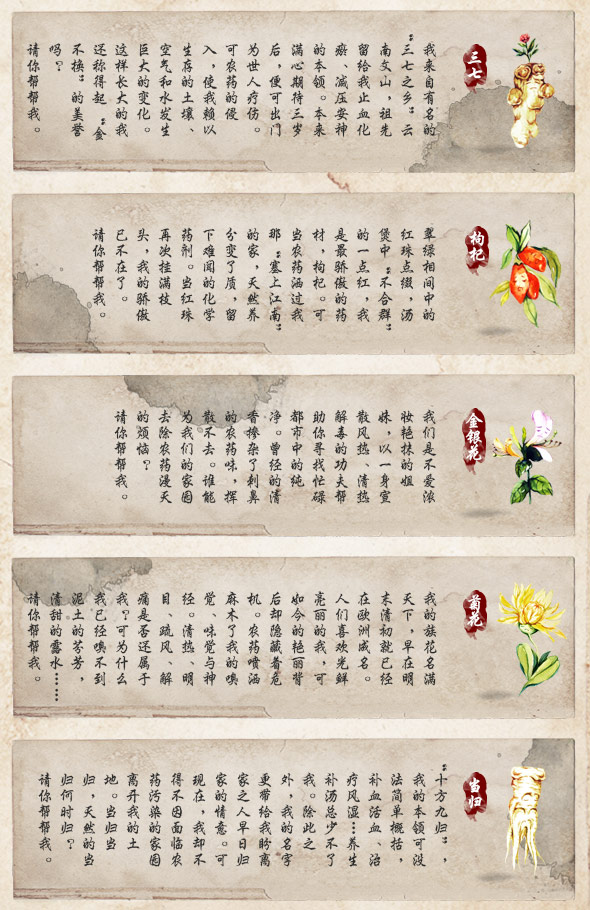 三七
我来自有名的
“三七之乡”云
南文山，祖先
留给我止血化
瘀、减压安神
的本领。本来
满心期待三岁
后，便可出门
为世人疗伤。
可农药的侵
入，使我赖以
生存的土壤、
空气和水发生
巨大的变化。
这样长大的我
还称得起“金
不换”的美誉
吗？
请你帮帮我。
枸杞
翠绿相间中的
红珠点缀，汤
煲中“不合群”
的一点红，我
是最骄傲的药
材，枸杞。可
当农药洒过我
那“塞上江南”
的家，天然养
分变了质，留
下难闻的化学
药剂。当红珠
再次挂满枝
头，我的骄傲
已不在了。
请你帮帮我。
金银花
我们是不爱浓
妆艳抹的姐
妹，以一身宣
散风热、清热
解毒的功夫帮
助你寻找忙碌
都市中的纯
净。曾经的清
香掺杂了刺鼻
的农药味，挥
散不去。谁能
为我们的家园
去除农药漫天
的烦恼？
请你帮帮我。
菊花
我的族花名满
天下，早在明
末清初就已经
在欧洲成名。
人们喜欢光鲜
亮丽的我，可
如今的艳丽背
后却隐藏着危
机。农药喷洒
麻木了我的嗅
觉、味觉与神
经。清热、明
目、疏风、解
痛是否还属于
我？可为什么
我已经嗅不到
泥土的芬芳，
清甜的露水……
请你帮帮我。
当归
“十方九归”，
我的本领可没
法简单概括，
补血活血、治
疗风湿…养生
补汤总少不了
我。除此之
外，我的名字
更带给我盼离
家之人早日归
家的情意。可
现在，我却不
得不因面临农
药污染的家园
离开我的土
地。当归当
归，天然的当
归何时归？
请你帮帮我。